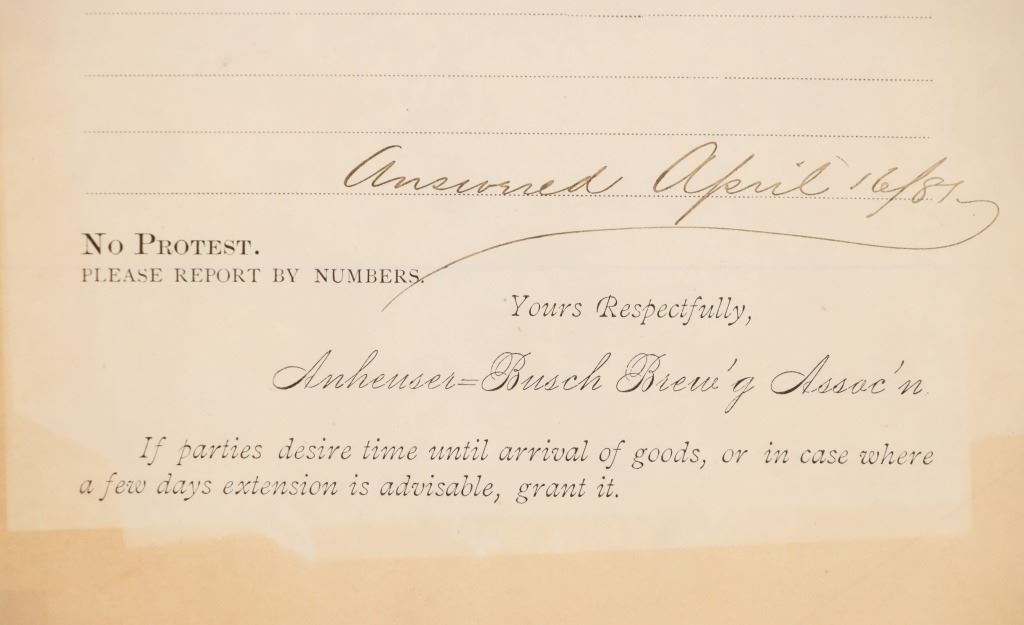 Answered April 16/81
No Protest.
PLEASE REPORT BY NUMBERS.
Yours Respectfully,
Anheuser=Busch Brew'g Assoc'n.
If parties desire time until arrival of goods, or in case where
a few days extension is advisable, grant it.